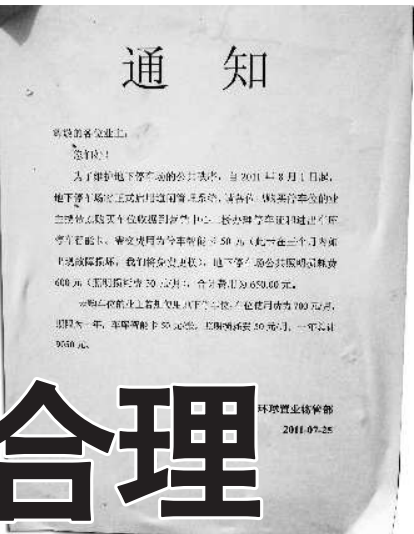 通 知
尊敬的各位业主：
您们好！
为了维护地下停车场的公共秩序，自 2011 年 8 月 1 日起，
地下停车场将正式启用道闸管理系统，请各位已购买停车位的业
主携带购买车位收据到 办理停车证和进出车库
停车智能卡，需交费用为停车智能卡 50 元（此卡在三个月内如
出现故障损坏，我们将免费更换），地下停车场公共照明损耗费
600 元（照明损耗费 50 元/月），合计费用为 650.00 元。
未购车位的业主若想使用地下停车位，车位使用费为 700 元/月，
期限为一年，车库智能卡 50 元/张，照明损耗费 50 元/月，一年共计
9050 元。
环球置业物管部
2011-07-25
合理